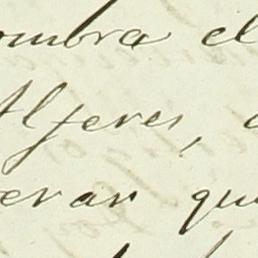 ombra el
Alferes,
erar que